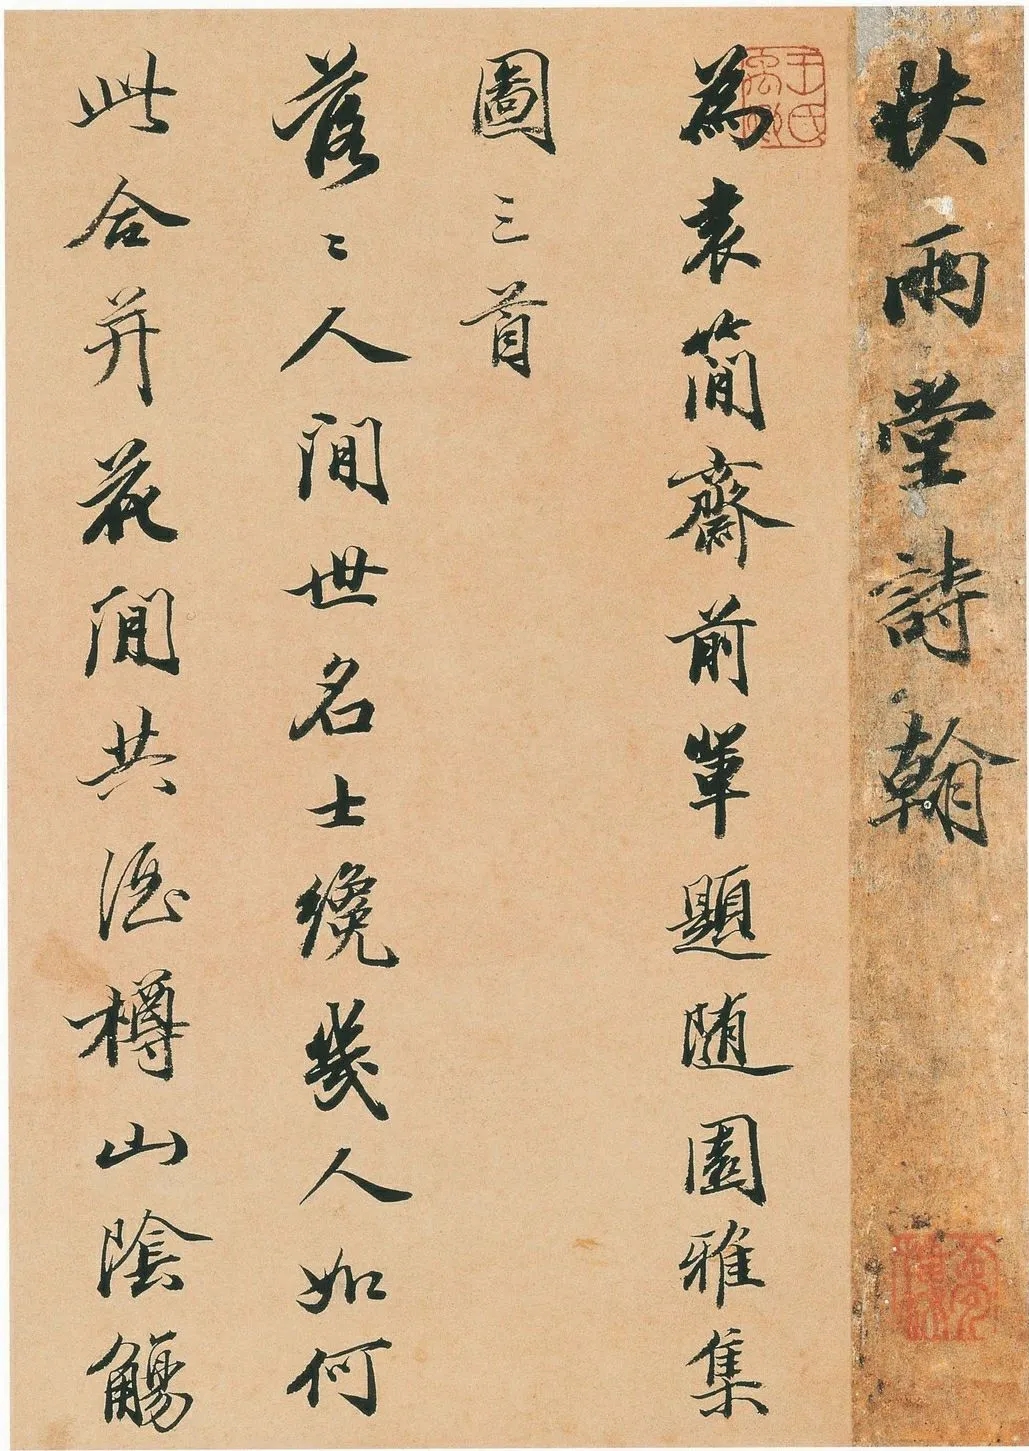 快雨堂詩翰
為袁簡齋前輩題随園雅集
圖三首
落〻人間世名士纔幾人如何
此合并花間共酒樽山陰觴